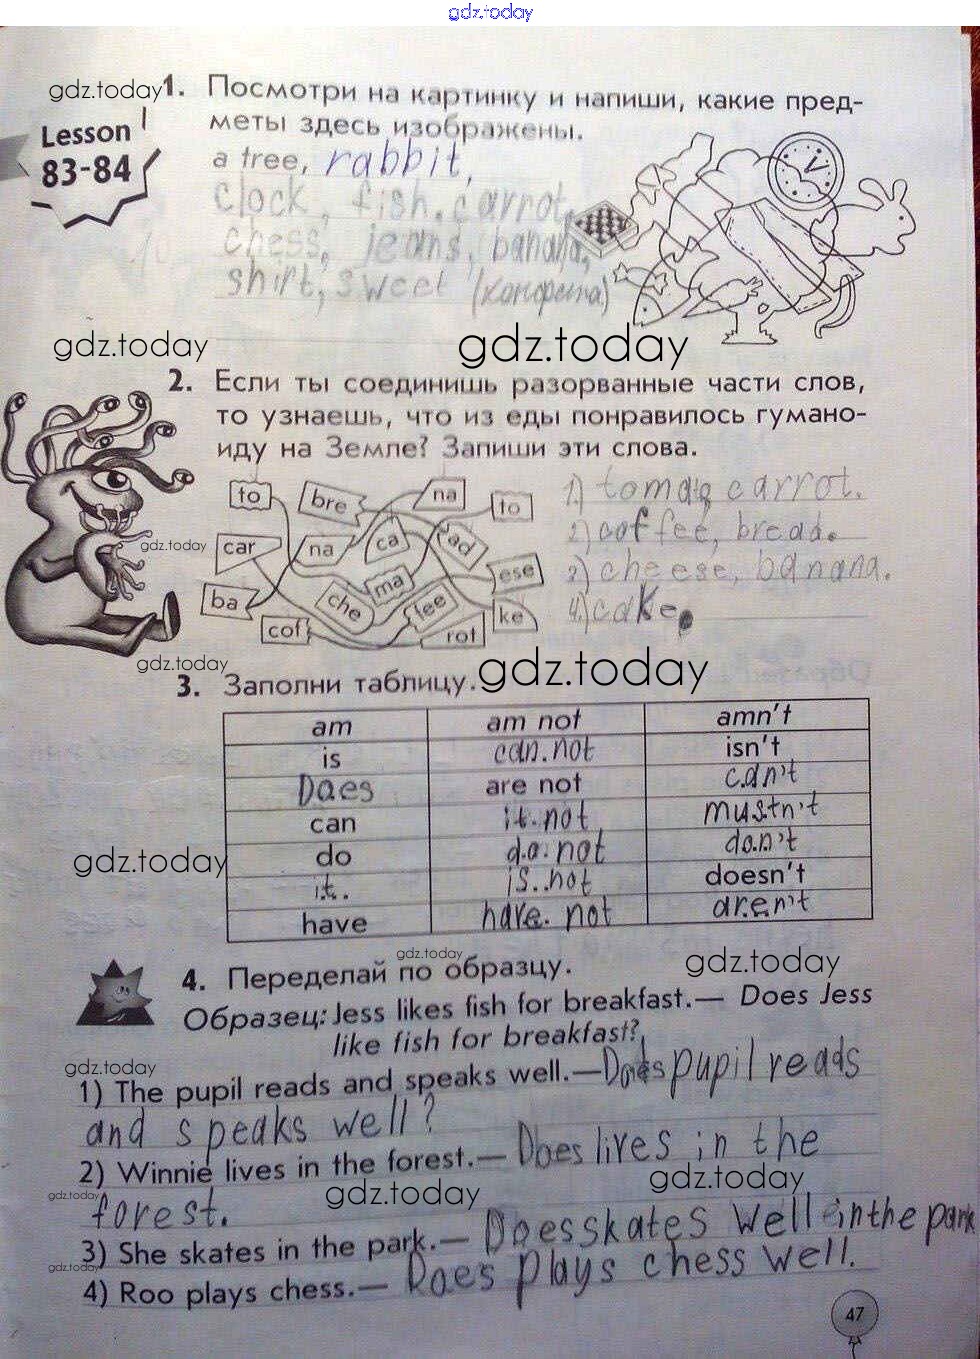 gdz.today
gdz.today
1. Посмотри на картинку и напиши, какие пред-
меты здесь изображены.
Lesson
83-84
a tree, rabbit,
clock, fish, carrot,
chess, jeans, banana,
shirt, sweet (конфета)
gdz.today
gdz.today
2. Если ты соединишь разорванные части слов,
то узнаешь, что из еды понравилось гумано-
иду на Земле? Запиши эти слова.
to
bre
na
to
car
na
ca
ad
ba
che
ma
fee
ese
ke
cof
rot
1) tomato, carrot.
2) coffee, bread.
3) cheese, banana.
4) cake.
gdz.today
gdz.today
gdz.today
3. Заполни таблицу.
am am not amn't
is can.not isn't
Does are not c.an't
can it.not mustn't
do d.o.not do.n't
it. is..not doesn't
have have. not ar.e.n't
gdz.today
gdz.today
gdz.today
4. Переделай по образцу.
Образец: Jess likes fish for breakfast.— Does Jess
like fish for breakfast?
gdz.today
1) The pupil reads and speaks well.—Does pupil reads
and speaks well?
2) Winnie lives in the forest.— Does lives in the
forest.
gdz.today
gdz.today
gdz.today
3) She skates in the park.— Does skates well in the park
gdz.today
4) Roo plays chess.— Does plays chess well.
47